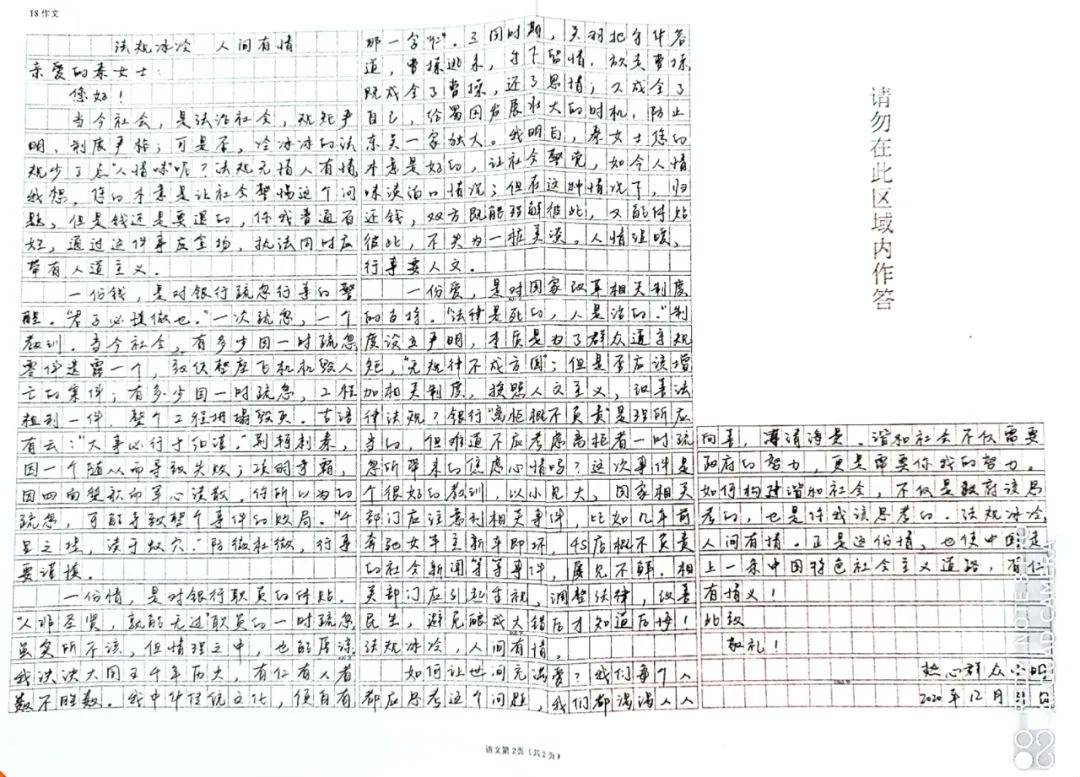 18 作文
法规冰冷 人间有情
亲爱的秦女士:
您好!
当今社会,是法治社会,规矩严
明,制度严格;可是否,冷冰冰的法
规少了点"人情味呢?法规无情人有情
我想,您的本意是让社会警惕这个问
题,但是钱还是要退的,你我普通百
姓,通过这件事应全场,执法同时应
带有人道主义.
一份钱,是对银行疏忽行事的警
醒."君子必慎微也."一次疏忽,一个
教训.当今社会,有多少因一时疏忽
零件遗露一个,致使整座飞机机毁人
亡的案件;有多少因一时疏忽,工程
粗制一件,整个工程坍塌毁灭.古语
有云:"大事必行于细谨."荆轲刺秦,
因一个随从而导致失败;项羽争霸,
因四面楚歌而军心涣散.你所以为的
疏忽,可能导致整个事件的败局."千
里之堤,溃于蚁穴."防微杜微,行事
要谨慎.
一份情,是对银行职员的体贴.
"人非圣贤,孰能无过"职员的一时疏忽
虽实所不该,但情理之中,也能原谅
我泱泱大国五千年历史,有仁有人者
数不胜数.我中华传统文化,便自有
那一字"仁".三国时期,关羽把守华容
道,曹操逃来,手下留情,放走曹操
既成全了曹操,还了恩情;又成全了
自己,给蜀国发展壮大的时机,防止
东吴一家独大.我明白,秦女士您的
本意是好的,让社会警觉,如今人情
味淡泊的情况;但在这种情况下,归
还钱,双方既能理解彼此,又能体贴
彼此,不失为一桩美谈.人情温暖,
行事要人文.
一份爱,是对国家改革相关制度
的支持."法律是死的,人是活的."制
度设立严明,本质是为了群众遵守规
矩,"无规律不成方圆";但是否应该增
加相关制度,按照人文主义,改善法
律法规?银行"离柜概不负责"是理所应
当的,但难道不应考虑离柜者一时疏
忽所带来的焦虑心情吗?这次事件是
个很好的教训,以小见大,国家相关
部门应注意到相关事件,比如几年前
奔驰女车主新车即坏,4S店概不负责
的社会新闻等等事件,屡见不鲜.相
关部门应引起重视,调整法律,改善
民生,避免酿成大错后才知道后悔!
法规冰冷,人间有情.
如何让世间充满爱?我们每个人
都应思考这个问题,我们都满满人人
向善,海清海晏.谐和社会不仅需要
政府的努力,更是需要你我的努力.
如何构建谐和社会,不仅是政府该思
考的,也是你我该思考的.法规冰冷
人间有情.正是这份情,也使中国走
上一条中国特色社会主义道路,有仁
有情义!
此致
敬礼!
热心群众小明
2020年12月
请勿在此区域内作答
语文第2页(共2页)